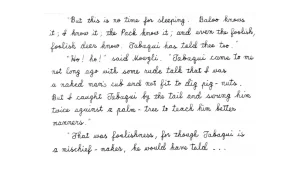 "But this is no time for sleeping. Baloo knows
it; I know it; the Pack know it; and even the foolish,
foolish deer know. Tabaqui has told thee too."
"Ho! ho!" said Mowgli. "Tabaqui came to me
not long ago with some rude talk that I was
a naked man's cub and not fit to dig pig-nuts.
But I caught Tabaqui by the tail and swung him
twice against a palm-tree to teach him better
manners."
"That was foolishness, for though Tabaqui is
a mischief-maker, he would have told ...